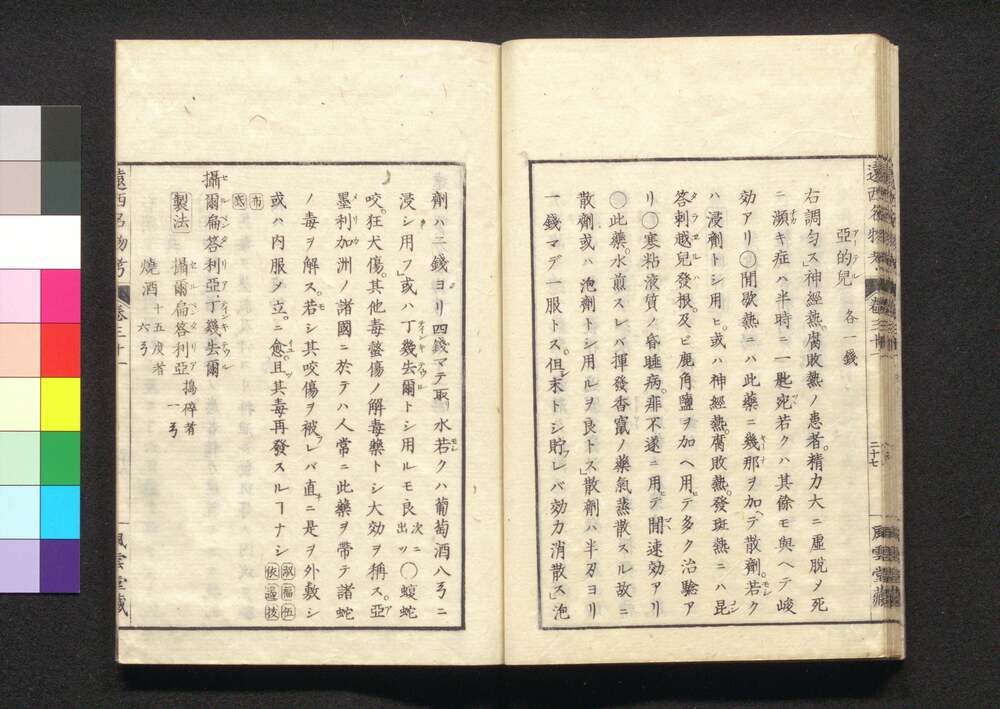 亞的兒 各一錢
右調勻ス」神經熱。腐敗熱ノ患者。精力大ニ虛脫メ死
ニ瀕キ症ハ半時ニ一匙宛若クハ其餘モ與ヘテ峻
効アリ〇間歇熱ニハ此藥ニ幾那ヲ加ヘテ散劑。若ク
ハ浸劑トシ用ヒ。或ハ神經熱。腐敗熱。發斑熱ニハ昆
答剌越兒發根。及ビ鹿角鹽ヲ加ヘ用テ多ク治驗ア
リ〇寒粘液質ノ昏睡病。痱不遂ニ用テ間速効アリ
〇此藥。水煎スレバ揮發香竄ノ藥氣蒸散スル故ニ
散劑或ハ泡劑トシ用ルヲ良トス」散劑ハ半刄ヨリ
一錢マデ一服トス。但末トシ貯フレバ効力消散ス」泡
遠西名物考 卷三十一 二十七 風雲堂藏
劑ハ二錢ヨリ四錢マテ取リ水若クハ葡萄酒八ㄢニ
浸シ用フ」或ハ丁幾去爾トシ用ルモ良次ニ出ツ〇蝮蛇
咬。狂犬傷。其他毒螫傷ノ解毒藥トシ大効ヲ稱ス。亞
墨利加洲ノ諸國ニ於テハ人常ニ此藥ヲ帶テ諸蛇
ノ毒ヲ解ス。若シ其咬傷ヲ被レバ直ニ是ヲ外敷シ
或ハ內服ノ立ニ愈。且其毒再發スルヿナシ
攝爾扁答利亞。丁幾去爾
製法 攝爾扁答利亞 搗碎者 一ㄢ
燒酒 十五度者 六ㄢ
遠西名物考 卷三十一 風雲堂藏